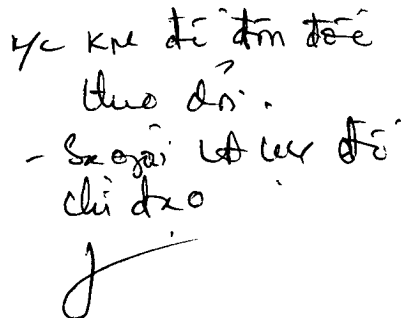 Y/c KNL để đôn đốc
theo dõi.
- Sao gửi LĐ để
chỉ đạo